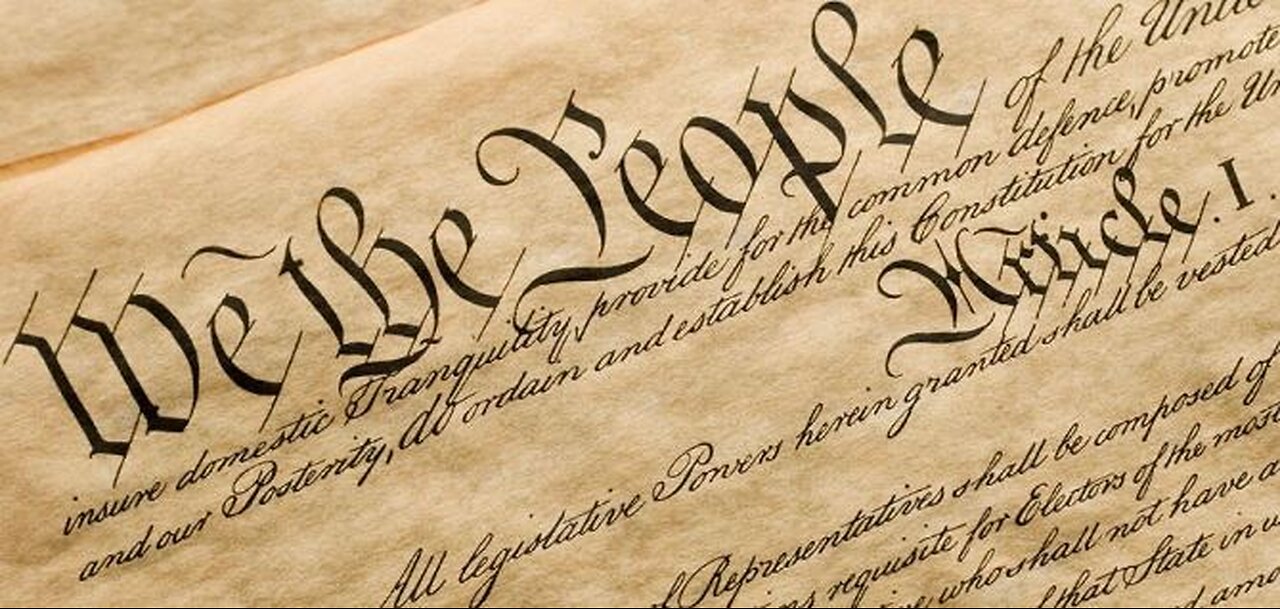 We the People of the Unite
insure domestic Tranquility, provide for the common defence, promote
and our Posterity, do ordain and establish this Constitution for the Un
Article. I.
All legislative Powers herein granted shall be vested
of Representatives shall be composed of
requisite for Electors of the most
who shall not have a
that State in w